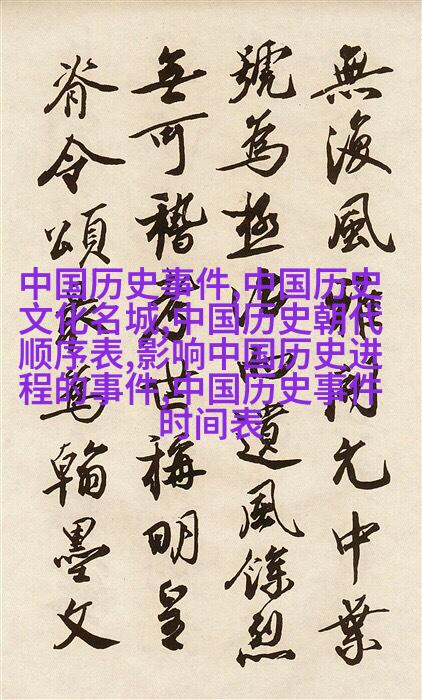 中国历史事件,中国历史
文化名城,中国历史朝代
顺序表,影响中国历史进
程的事件,中国历史事件
时间表
無復風雅開元中葉
號爲極治遺風餘烈
無可稽考世稱明皇
脊令頌最爲翰墨文